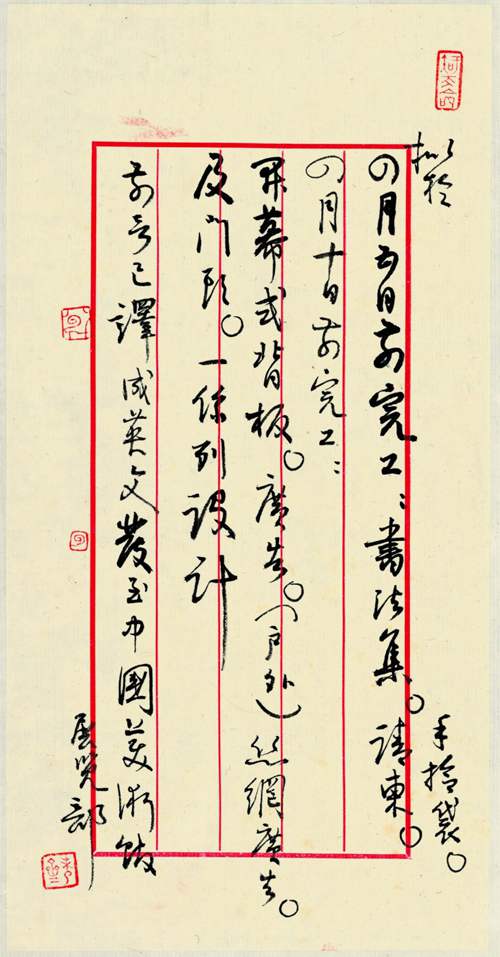 拟於
四月五日前完工：書法集。請柬。
手拎袋。
四月十日前完工：
開幕式背板。廣告。（户外）丝網廣告。
及門頭。一係列設計
前言已譯成英文發至中國美術馆
展览部